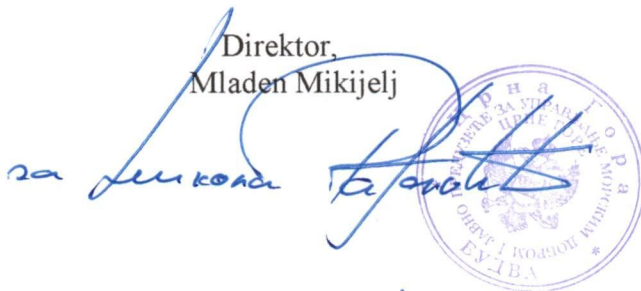 Direktor,
Mladen Mikijelj
за
Црна Гора
ЈАВНО ПРЕДУЗЕЋЕ ЗА УПРАВЉАЊЕ МОРСКИМ ДОБРОМ
ЦРНЕ ГОРЕ
БУДВА